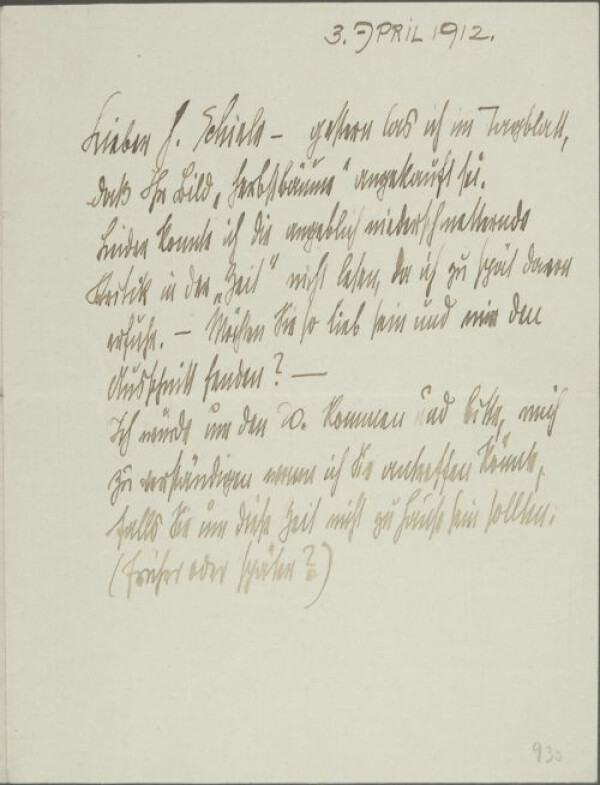 3. APRIL 1912.
Lieber H. Schiele – gestern las ich im Tagblatt,
daß Ihr Bild „Herbstbäume" angekauft sei.
Leider konnte ich die angeblich niederschmetternde
Kritik in der „Zeit" nicht lesen, da ich zu spät davon
erfuhr. – Möchten Sie so lieb sein und mir den
Ausschnitt senden? —
Ich würde um den 20. kommen und bitte, mich
zu verständigen wann ich Sie antreffen könnte,
falls Sie um diese Zeit nicht zu Hause sein sollten.
(früher oder später?)
930